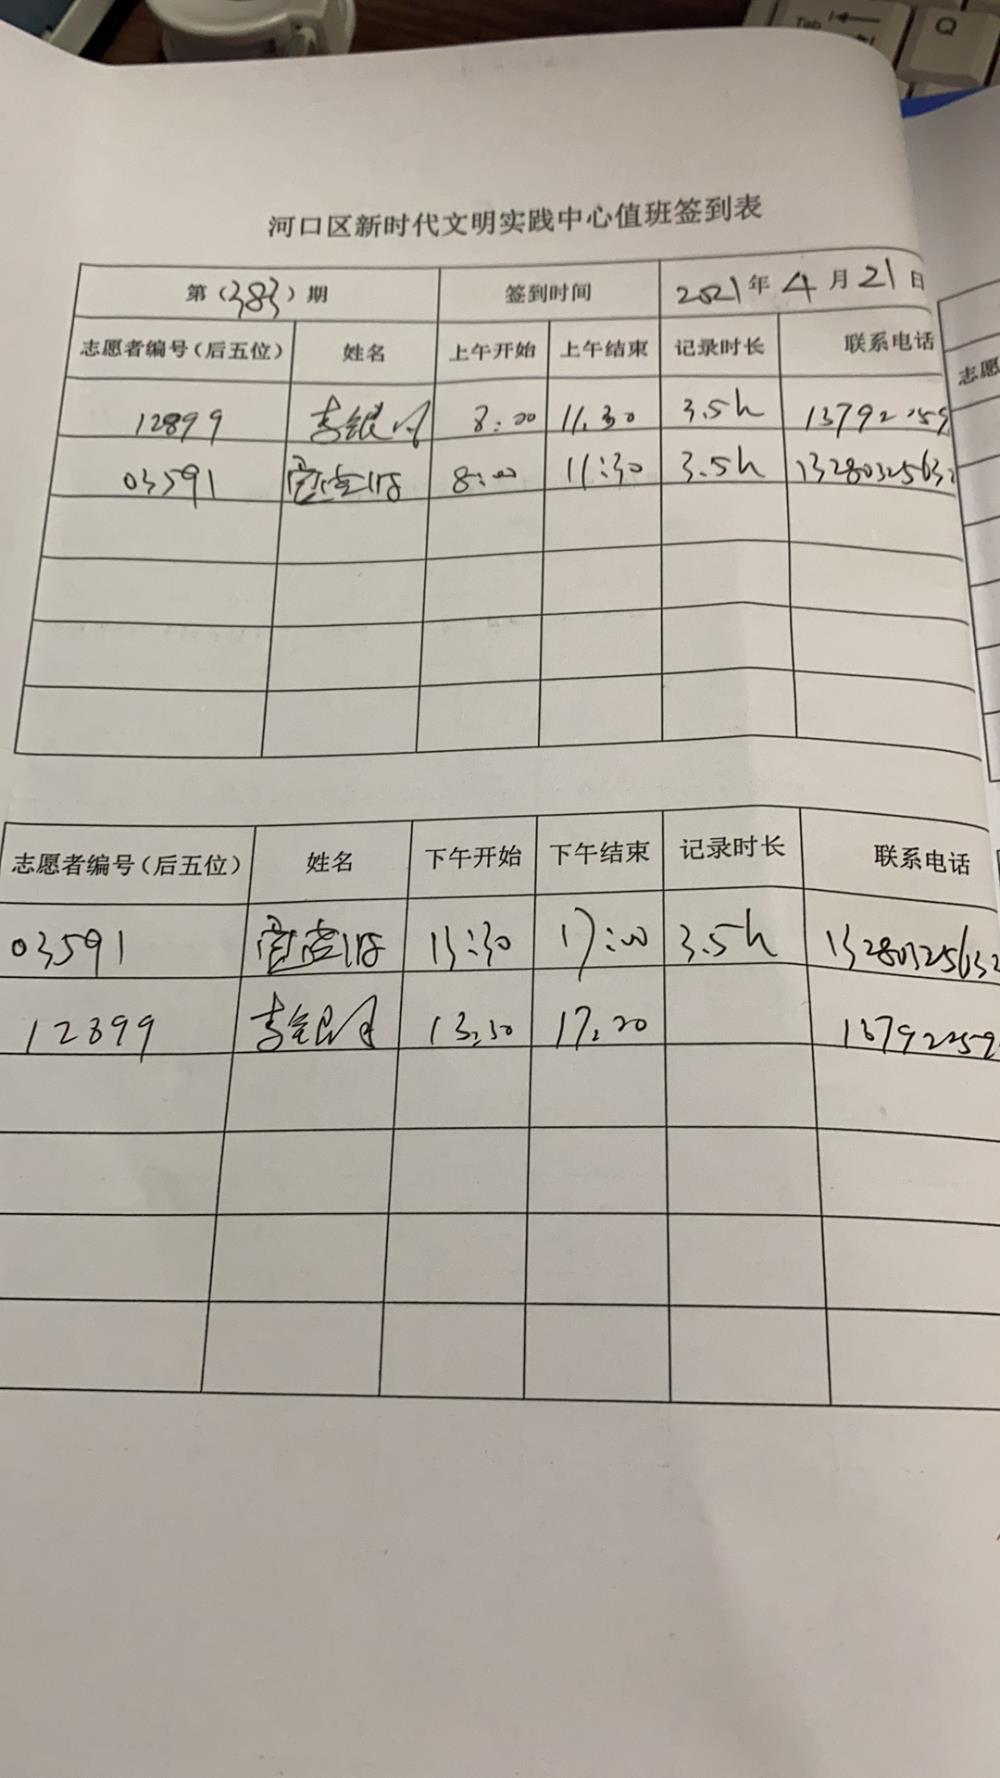 Tab
Q
河口区新时代文明实践中心值班签到表
第（383）期 签到时间 2021年4月21日
志愿者编号（后五位） 姓名 上午开始 上午结束 记录时长 联系电话
12899 李银月 8:00 11.30 3.5h 13792
03591 8:00 11:30 3.5h 13280325632
志愿
志愿者编号（后五位） 姓名 下午开始 下午结束 记录时长 联系电话
03591 13:30 17:00 3.5h 13280325632
12899 李银月 13.30 17.00 137922259